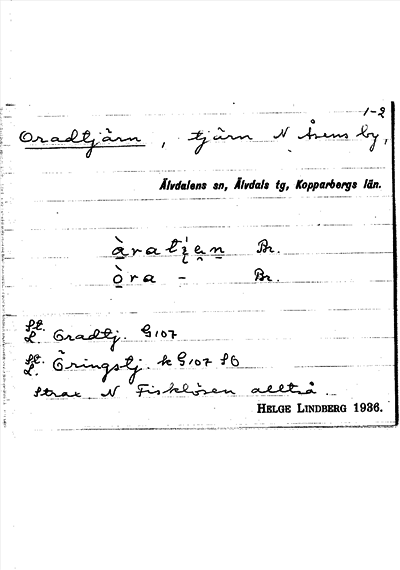 1-2
Oradtjärn, tjärn N Åsens by,
Älvdalens sn, Älvdals tg, Kopparbergs län.
àratjęn Br.
òra – Br.
St. L. Oradtj. G107
St. L. Öringstj. k G107 SO
Strax N Fisklösen alltså.
HELGE LINDBERG 1936.